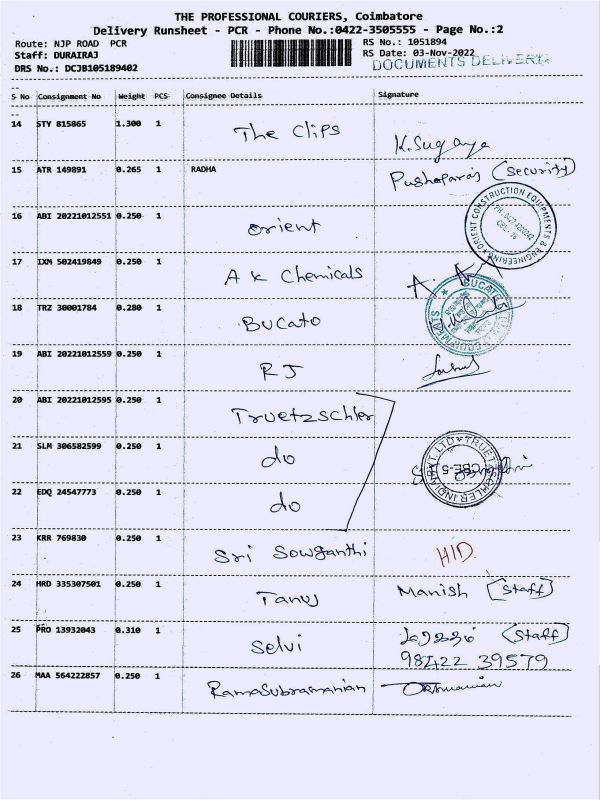 THE PROFESSIONAL COURIERS, Coimbatore
Delivery Runsheet - PCR - Phone No.:0422-3505555 - Page No.:2
Route: NJP ROAD PCR
RS No.: 1051894
Staff: DURAIRAJ
RS Date: 03-Nov-2022
DRS No.: DCJB105189402
DOCUMENTS DELIVERY
S No Consignment No Weight PCS Consignee Details Signature
14 STY 815865 1.300 1 The Clips K.Suganya
15 ATR 149891 0.265 1 RADHA Pushoparaj (Security)
16 ABI 20221012551 0.250 1 orient
ORIENT CONSTRUCTION EQUIPMENTS & ENGINEERING
17 IXM 502419849 0.250 1 A K Chemicals
18 TRZ 30001784 0.280 1 Bucato
BUCATO
19 ABI 20221012559 0.250 1 RJ
20 ABI 20221012595 0.250 1 Truetzschler
21 SLM 306582599 0.250 1 do
22 EDQ 24547773 0.250 1 do
23 KRR 769830 0.250 1 Sri Sowganthi HID
24 HRD 335307501 0.250 1 Tanus Manish (Staff)
25 PRO 13932043 0.310 1 Selvi (Staff)
98422 39579
26 MAA 564222857 0.250 1 RamaSubramanian